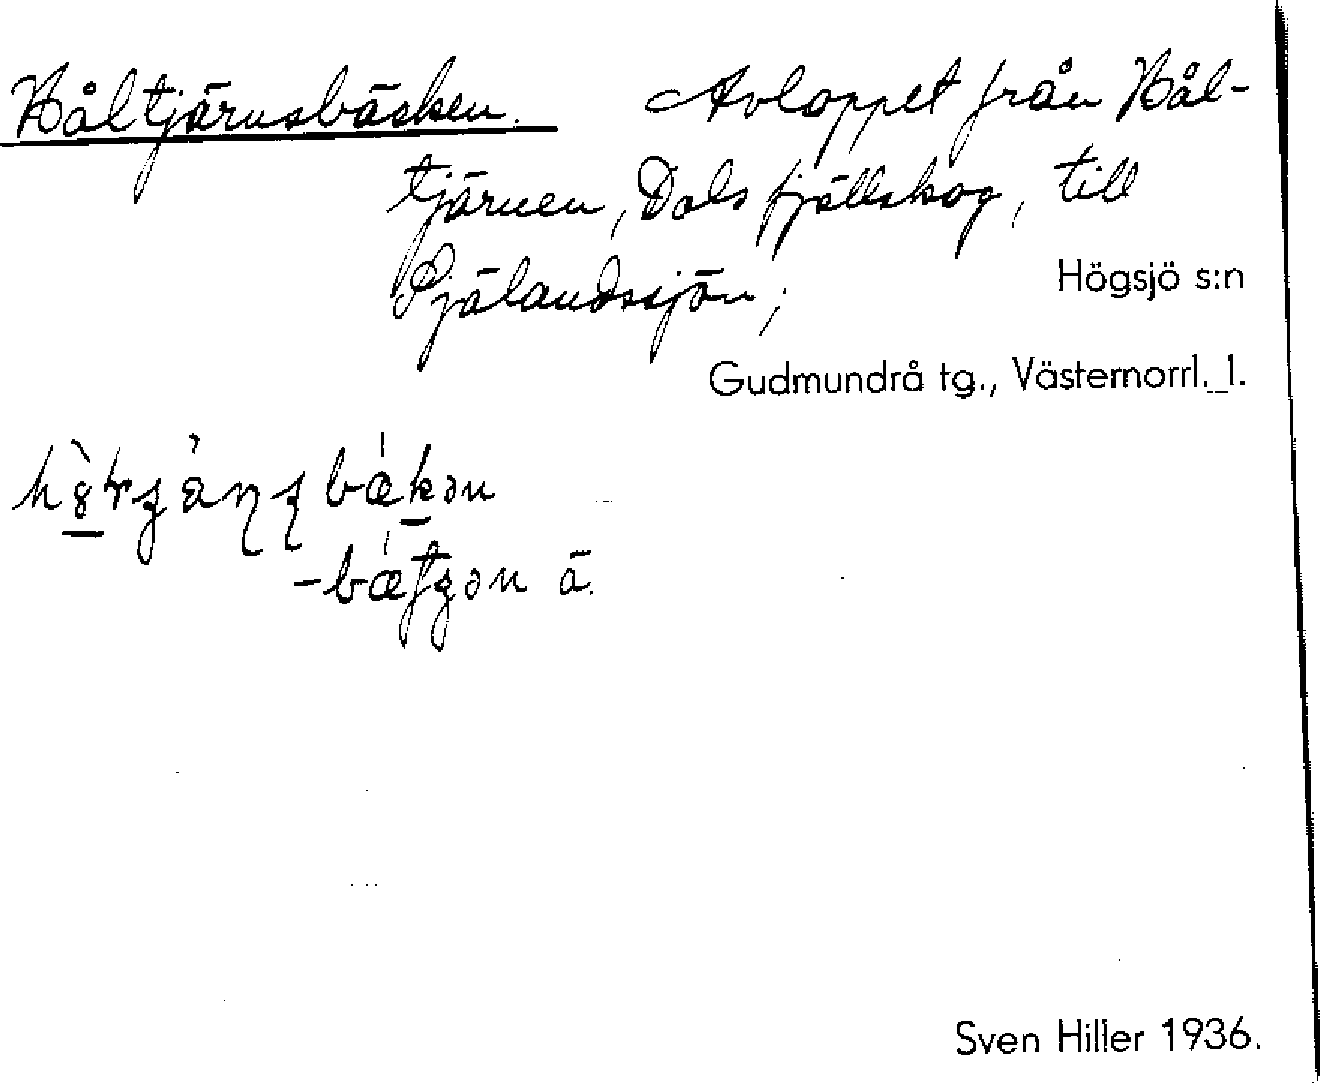 Håltjärnsbäcken. Avloppet från Hål-
tjärnen, Dals fjällskog, till
Själandssjön;
Högsjö s:n
Gudmundrå tg., Västernorrl. l.
ä.
Sven Hiller 1936.